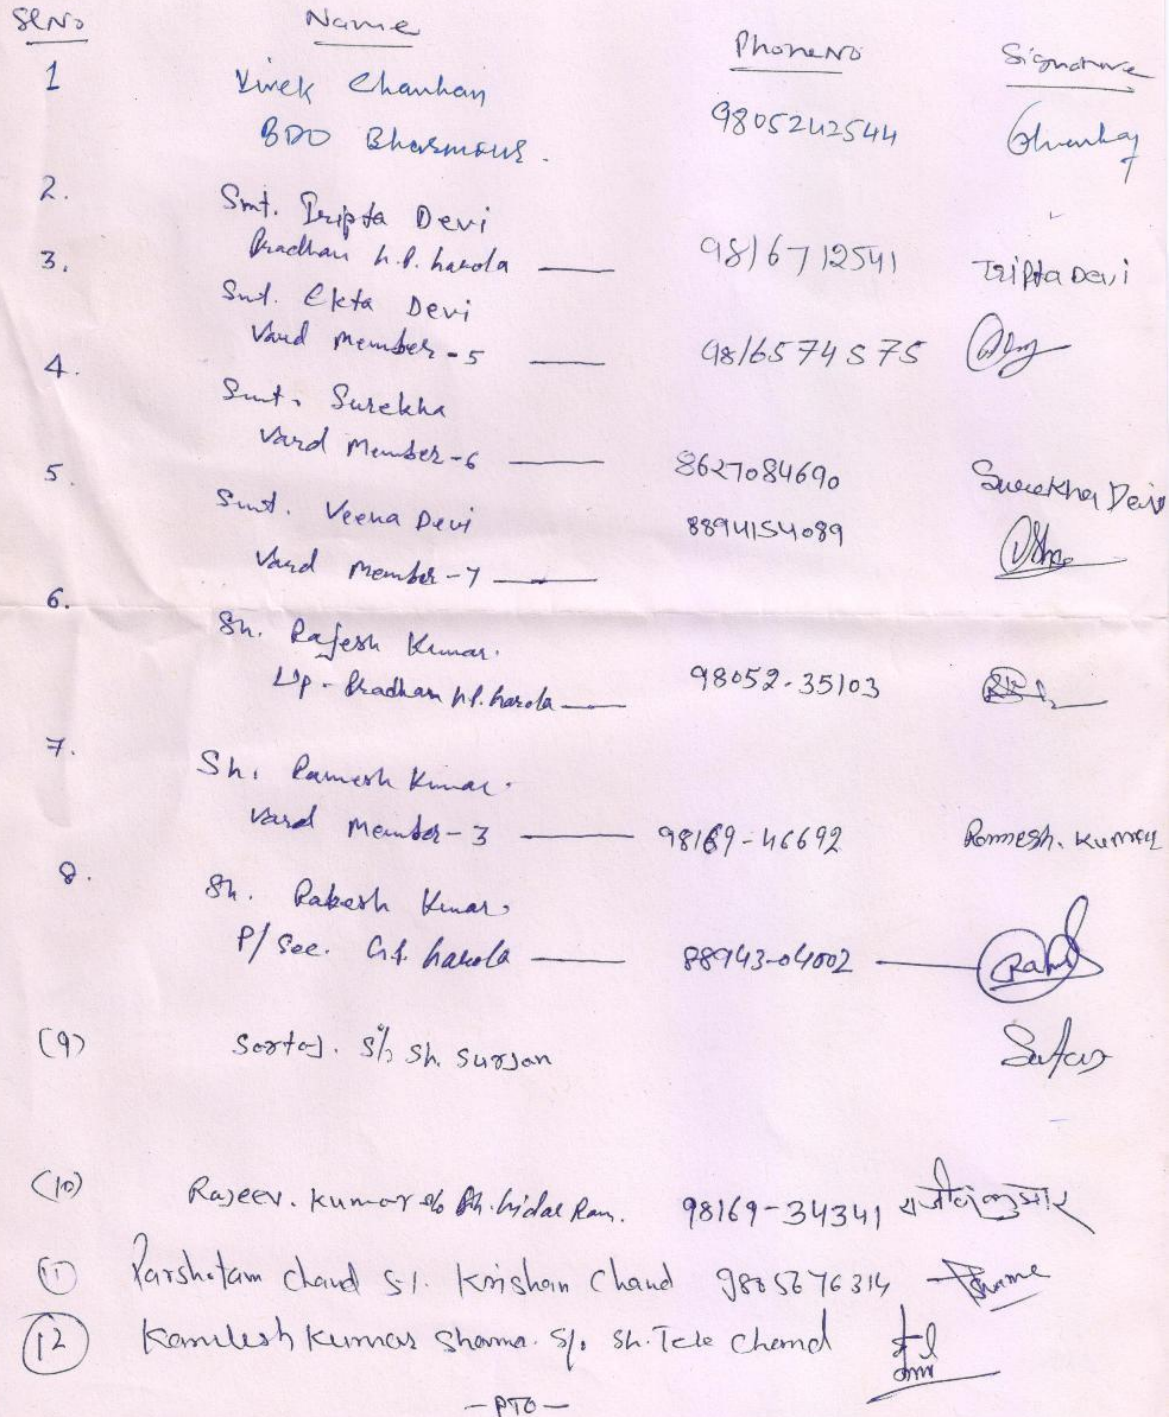 Sl No Name Phone No Signature
1 Vivek Chauhan 9805242544
BDO Bharmour.
2. Smt. Tripta Devi
Pradhan G.P. Garola — 9816712541 Tripta Devi
3. Smt. Ekta Devi
Vard Member - 5 — 9816574575
4. Smt. Surekha
Vard Member - 6 — 8627084690 Surekha Devi
5. Smt. Veena Devi 8894154089
Vard Member - 7 —
6. Sh. Rajesh Kumar.
Up - Pradhan G.P. Garola — 98052-35103
7. Sh. Ramesh Kumar.
Vard Member - 3 — 98169-46692 Ramesh. Kumar
8. Sh. Rakesh Kumar
P/Sec. G.P. Garola — 88943-04002 —
(9) Sartaj. S/o Sh. Surjan
(10) Rajeev. Kumar s/o Sh. Ram. 98169-34341 राजीव कुमार
11 Parshotam Chand S/. Krishan Chand 9805676314
12 Kamlesh Kumar Sharma. S/o Sh. Tek Chand
— PTO —